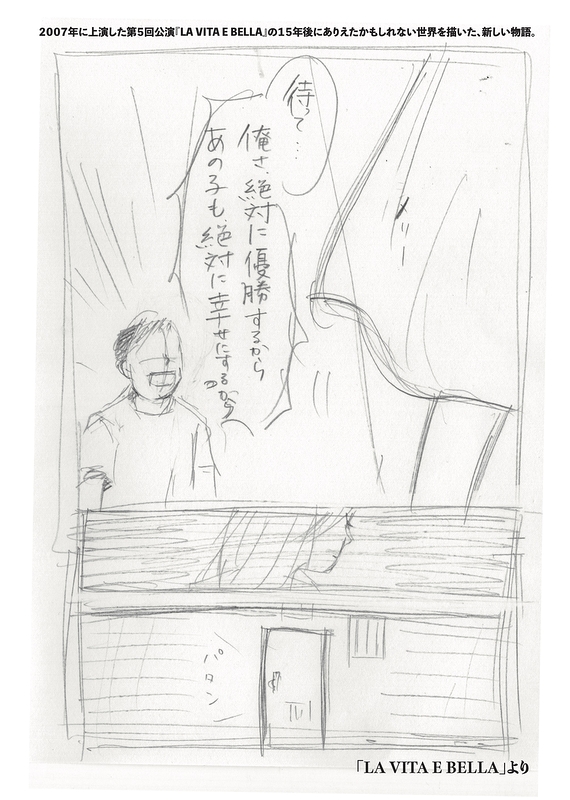 2007年に上演した第5回公演『LA VITA E BELLA』の15年後にありえたかもしれない世界を描いた、新しい物語。
待って…
俺さ、絶対に優勝するから
あの子も、絶対に幸せにするから
メリー
パタン
「LA VITA E BELLA」より